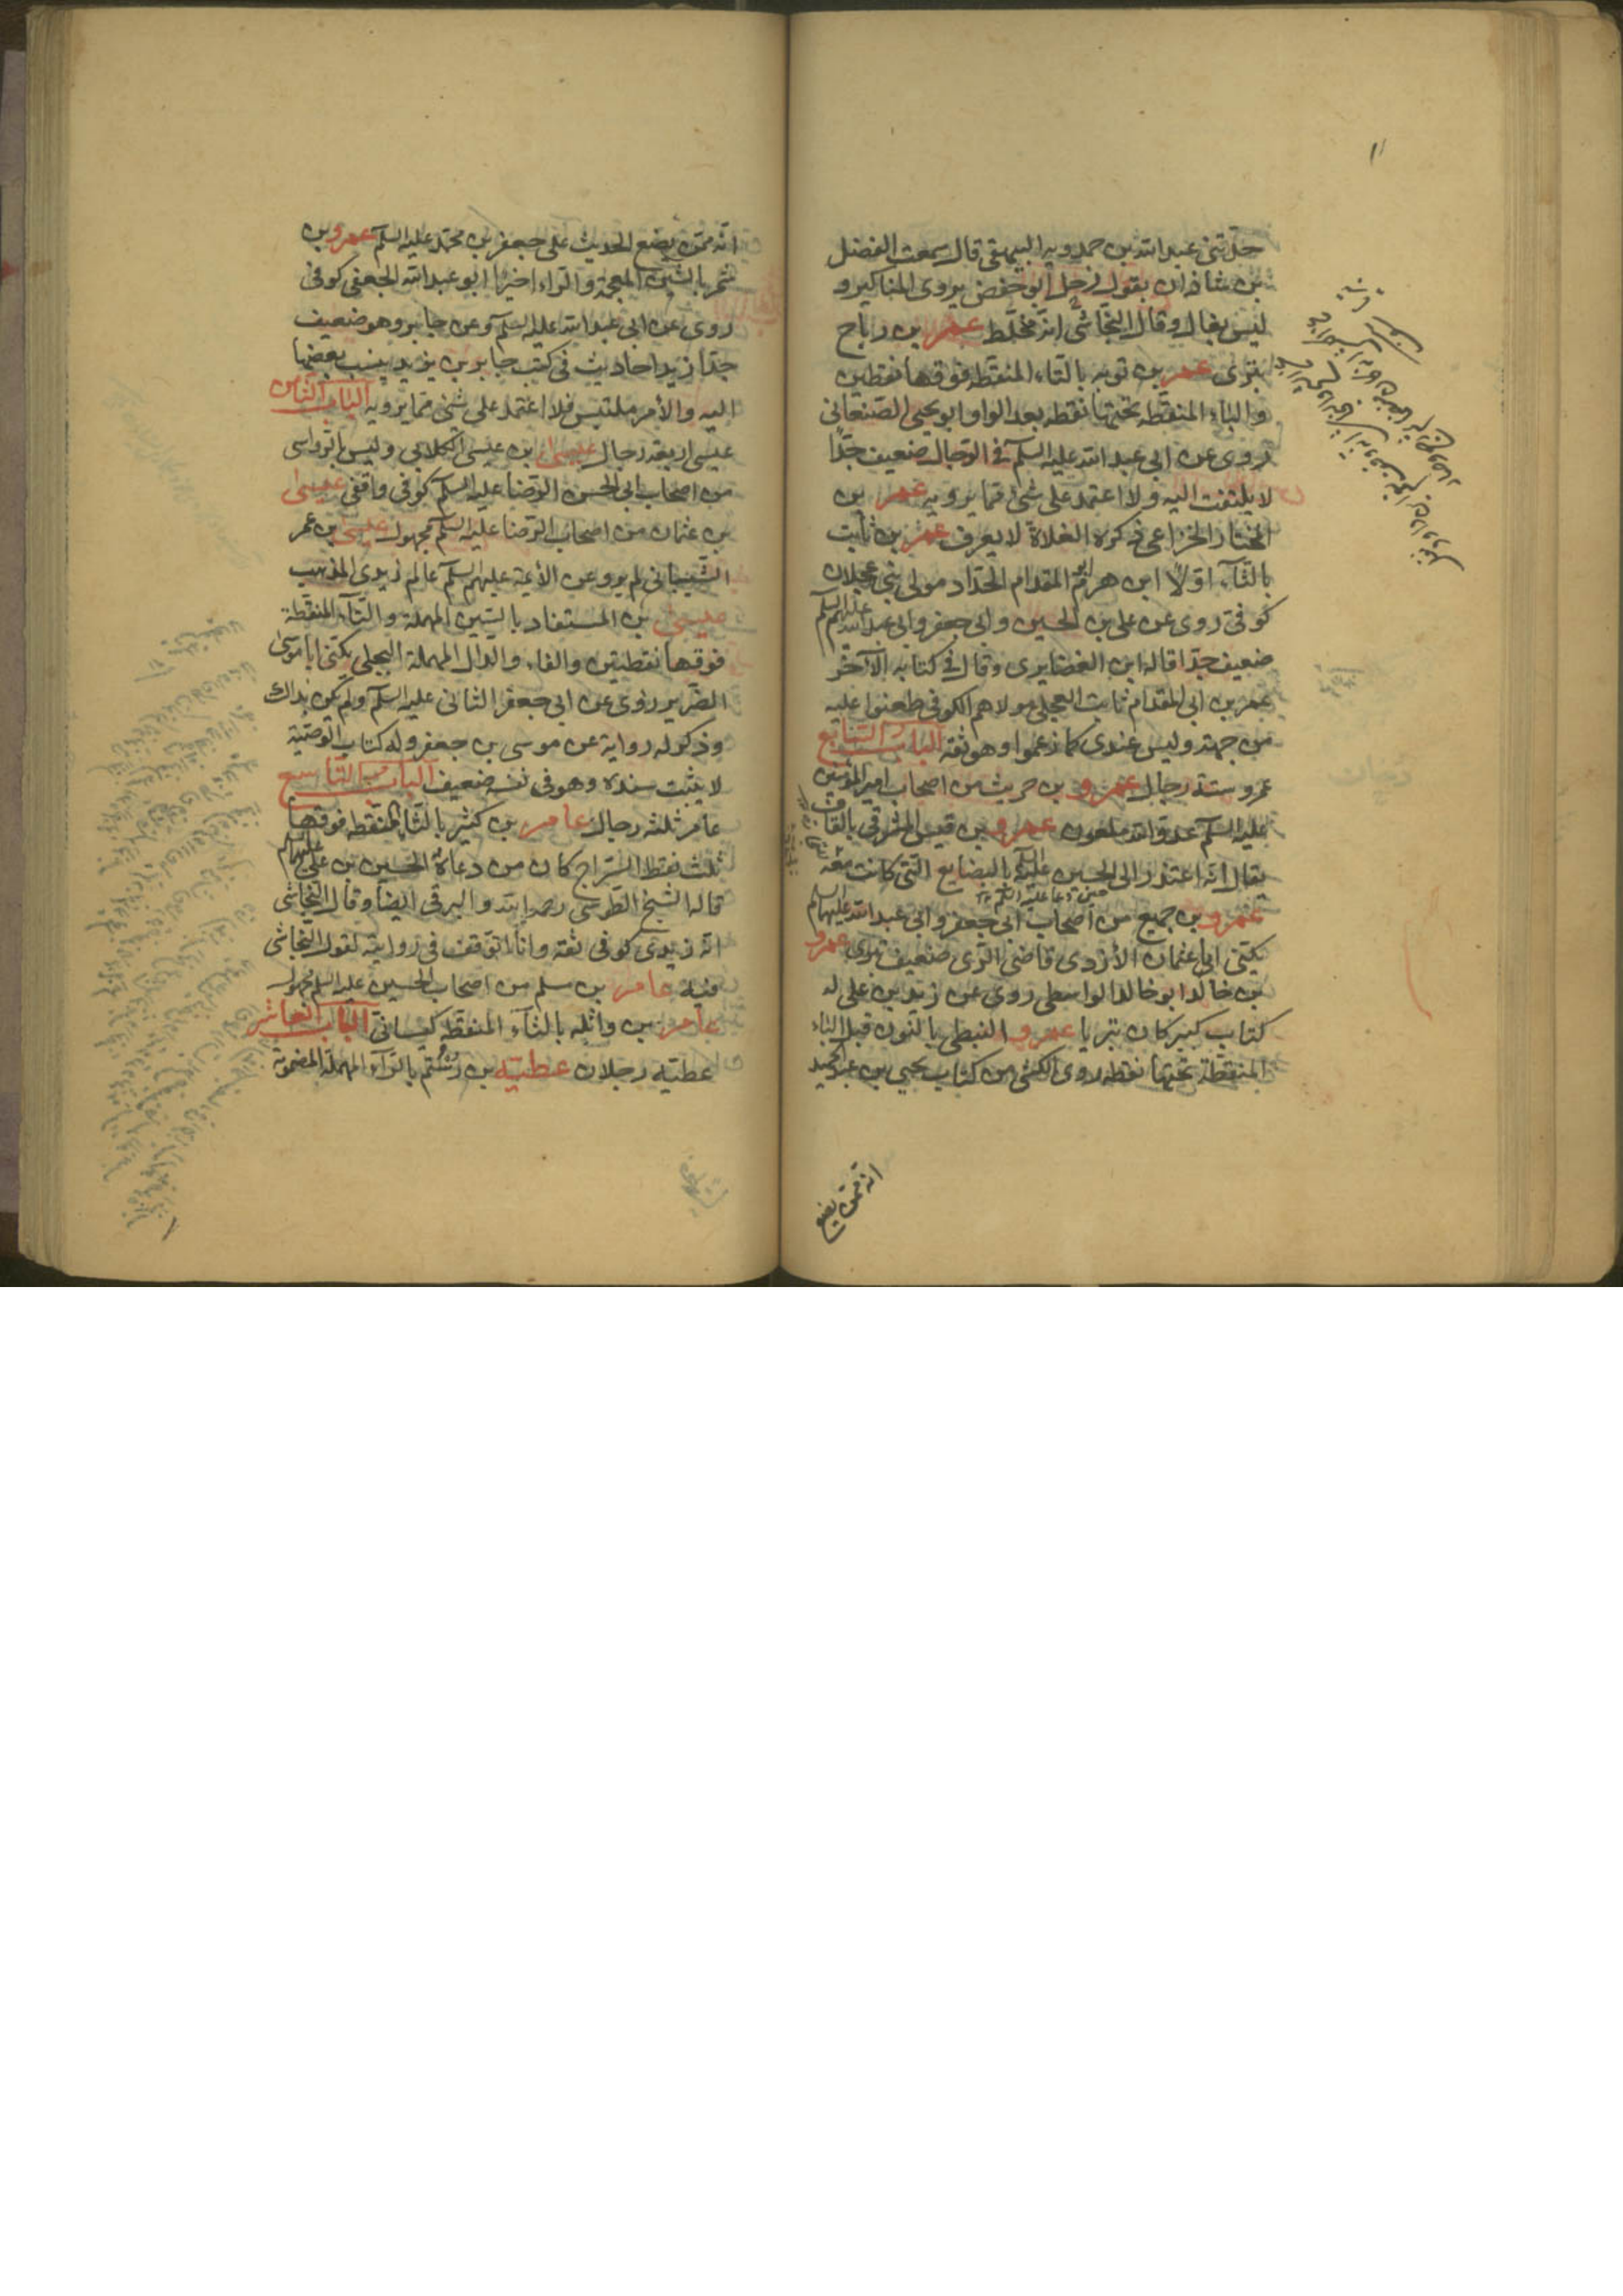 حدثني عبد الله بن حمدويه البيهقي قال سمعت الفضل
بن شاذان يقول زحل ابو حفص يروي المناكير و
ليس بغال وقال النجاشي انه مخلط عمر بن رياح
بتري عمر بن توبه بالتاء المنقطه فوقها نقطتين
والباء المنقطه تحتها نقطه بعد الواو ابو يحيى الصنعاني
روى عن ابي عبد الله عليه السلم في الرجال ضعيف جدا
لا يلتفت اليه ولا اعتمد على شئ مما يرويه عمر بن
المختار الخزاعي ذكره الغلاة لا يعرف عمر بن ثابت
بالثاء اولا ابن هرم ابو المقدام الحداد مولى بني عجلان
كوفي روى عن علي بن الحسين وابي جعفر وابي عبد الله عليهم السلم
ضعيف جدا قاله ابن الغضايري وقال في كتابه الآخر
عمر بن ابي المقدام ثابت العجلي مولاهم الكوفي طعنوا عليه
من جهته وليس عندي كما زعموا وهو ثقه الباب السابع
عمرو ستة رجال عمرو بن حريث من اصحاب امير المؤمنين
عليه السلم عدو الله ملعون عمرو بن قيس المشرقي بالقاف
يقال انه اعتذر الى الحسين عليه السلم بالبضايع التي كانت معه
حين دعا عليه السلم
عمرو بن جميع من اصحاب ابي جعفر وابي عبد الله عليهما السلم
يكنى ابا عثمان الأزدي قاضي الري ضعيف بتري عمرو
بن خالد ابو خالد الواسطي روى عن زيد بن علي له
كتاب كبير كان بتريا عمرو النبطي بالنون قبل الباء
المنقطة تحتها نقطه روى الكشي من كتاب يحيى بن عبد الحميد
انه ممن يضع
انه ممن يضع الحديث على جعفر بن محمد عليه السلم عمرو بن
شمر بالشين المعجمة والراء اخيرا ابو عبد الله الجعفي كوفي
روى عن ابي عبد الله عليه السلم وعن جابر وهو ضعيف
جدا زيد احاديث في كتب جابر بن يزيد ينسب بعضها
اليه والأمر ملتبس فلا اعتمد على شئ مما يرويه الباب الثامن
عيسى اربعة رجال عيسى ابن عيسى الكلابي وليس بالرواسي
من اصحاب ابي الحسن الرضا عليه السلم كوفي واقفي عيسى
بن عثمان من اصحاب الرضا عليه السلم مجهول عيسى بن عمر
الشيباني لم يرو عن الأئمة عليهم السلم عالم زيدي المذهب
عيسى بن المستفاد بالسين المهملة والتاء المنقطة
فوقها نقطتين والفاء والدال المهملة البجلي يكنى ابا موسى
الضرير روى عن ابي جعفر الثاني عليه السلم ولم يكن بذاك
وذكر له رواية عن موسى بن جعفر وله كتاب الوصية
لا يثبت سنده وهو في نفسه ضعيف الباب التاسع
عامر ثلثه رجال عامر بن كثير بالثاء المنقطه فوقها
ثلث نقط السراج كان من دعاة الحسين بن علي عليهما السلم
قاله الشيخ الطوسي رحمه الله والبرقي ايضا وقال النجاشي
انه زيدي كوفي ثقة وانا اتوقف في روايته لقول النجاشي
فيه عامر بن مسلم من اصحاب الحسين عليه السلم مجهول
عامر بن واثله بالثاء المنقطه كيساني الباب العاشر
عطية رجلان عطية بن رستم بالراء المهملة المضمومة